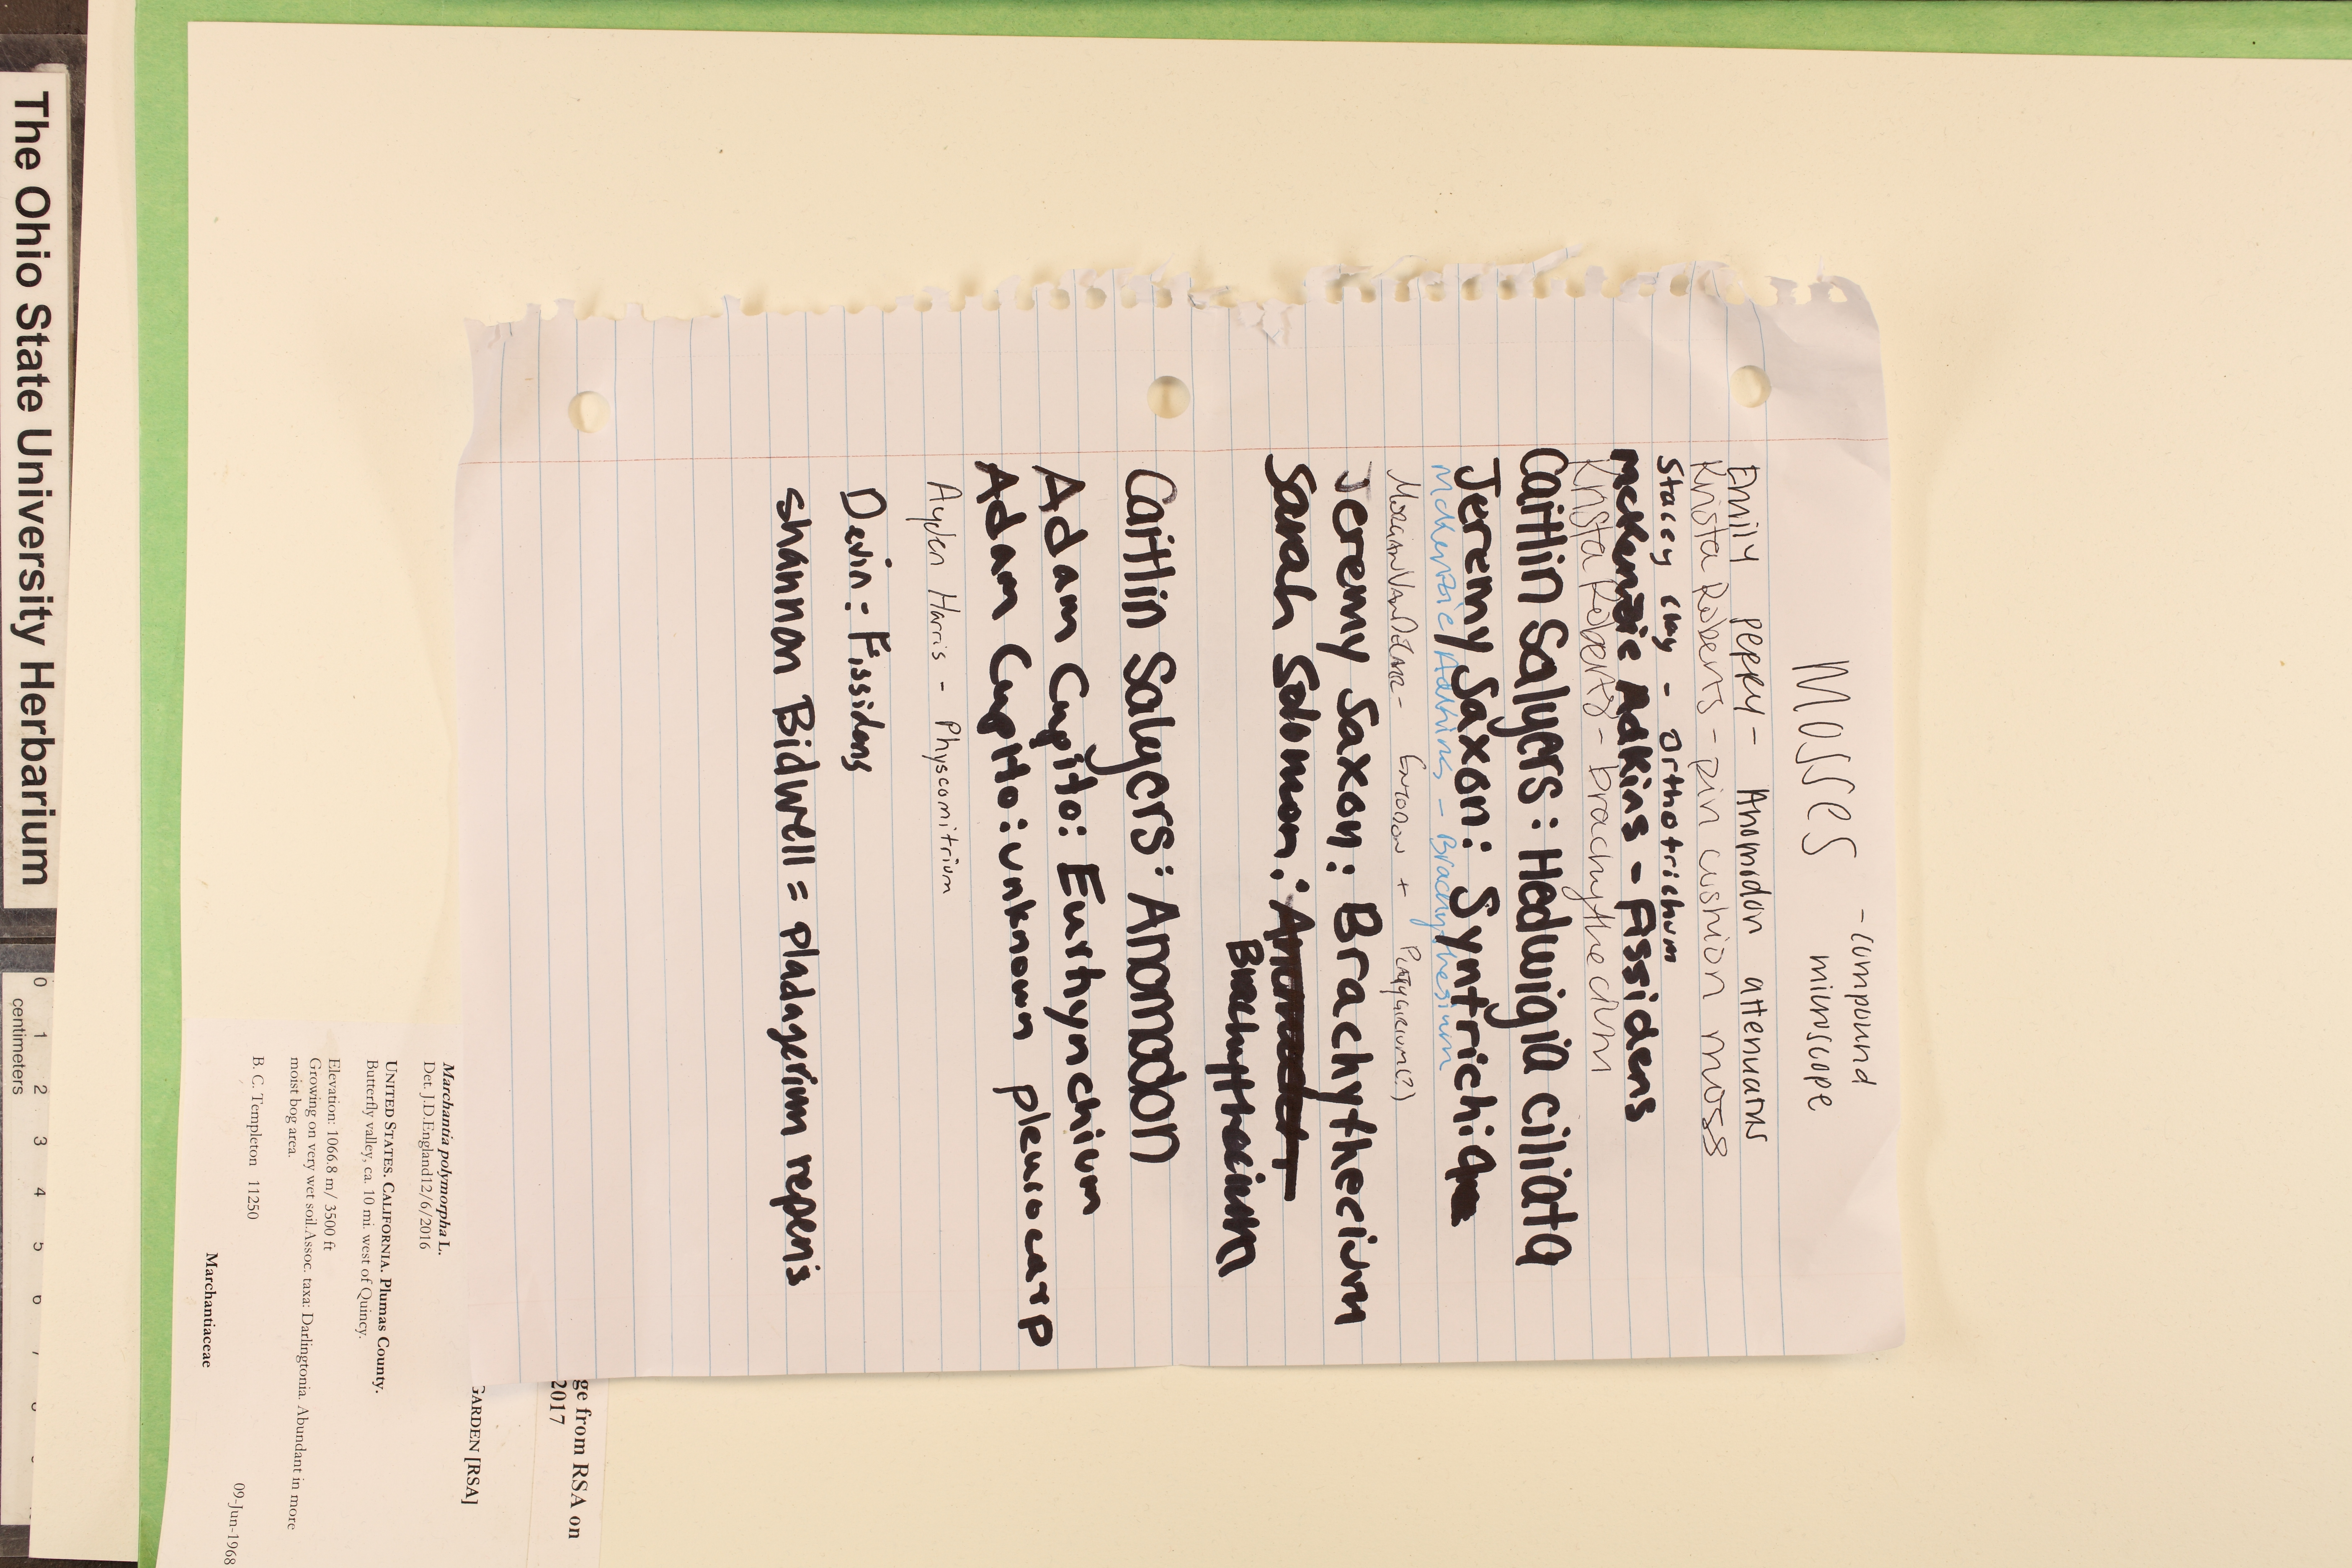 Mosses
- compound
microscope
Emily Perry - Anomidon attenuatus
Krista Roberts - pin cushion moss
Staccy Clay - Orthotrichum
McKenzie Adkins - Fissidens
Krista Roberts - brachythecium
Caitlin Salyers: Hedwigia ciliata
Jeremy Saxon: Syntrichia
McKenzie Adkins - Brachythesium
Morgan VanDeMar - Entodon + Platygyrium(?)
Jeremy Saxon: Brachythecium
Sarah Solomon:
Brachythecium
Caitlin Salyers: Anomodon
Adam Cupito: Eurhynchium
Adam Cupito: unknown pleurocarp
Ayden Harris - Physcomitrium
Devin: Fissidens
Shannon Bidwell = pladagerium repens
ge from RSA on
2017
GARDEN [RSA]
Marchantia polymorpha L.
Det. J.D.England12/6/2016
UNITED STATES. CALIFORNIA. Plumas County.
Butterfly valley, ca. 10 mi. west of Quincy.
Elevation: 1066.8 m/ 3500 ft
Growing on very wet soil.Assoc. taxa: Darlingtonia. Abundant in more
moist bog area.
B. C. Templeton 11250
09-Jun-1968
Marchantiaceae
The Ohio State University Herbarium
0 1 2 3 4 5 6 7
centimeters